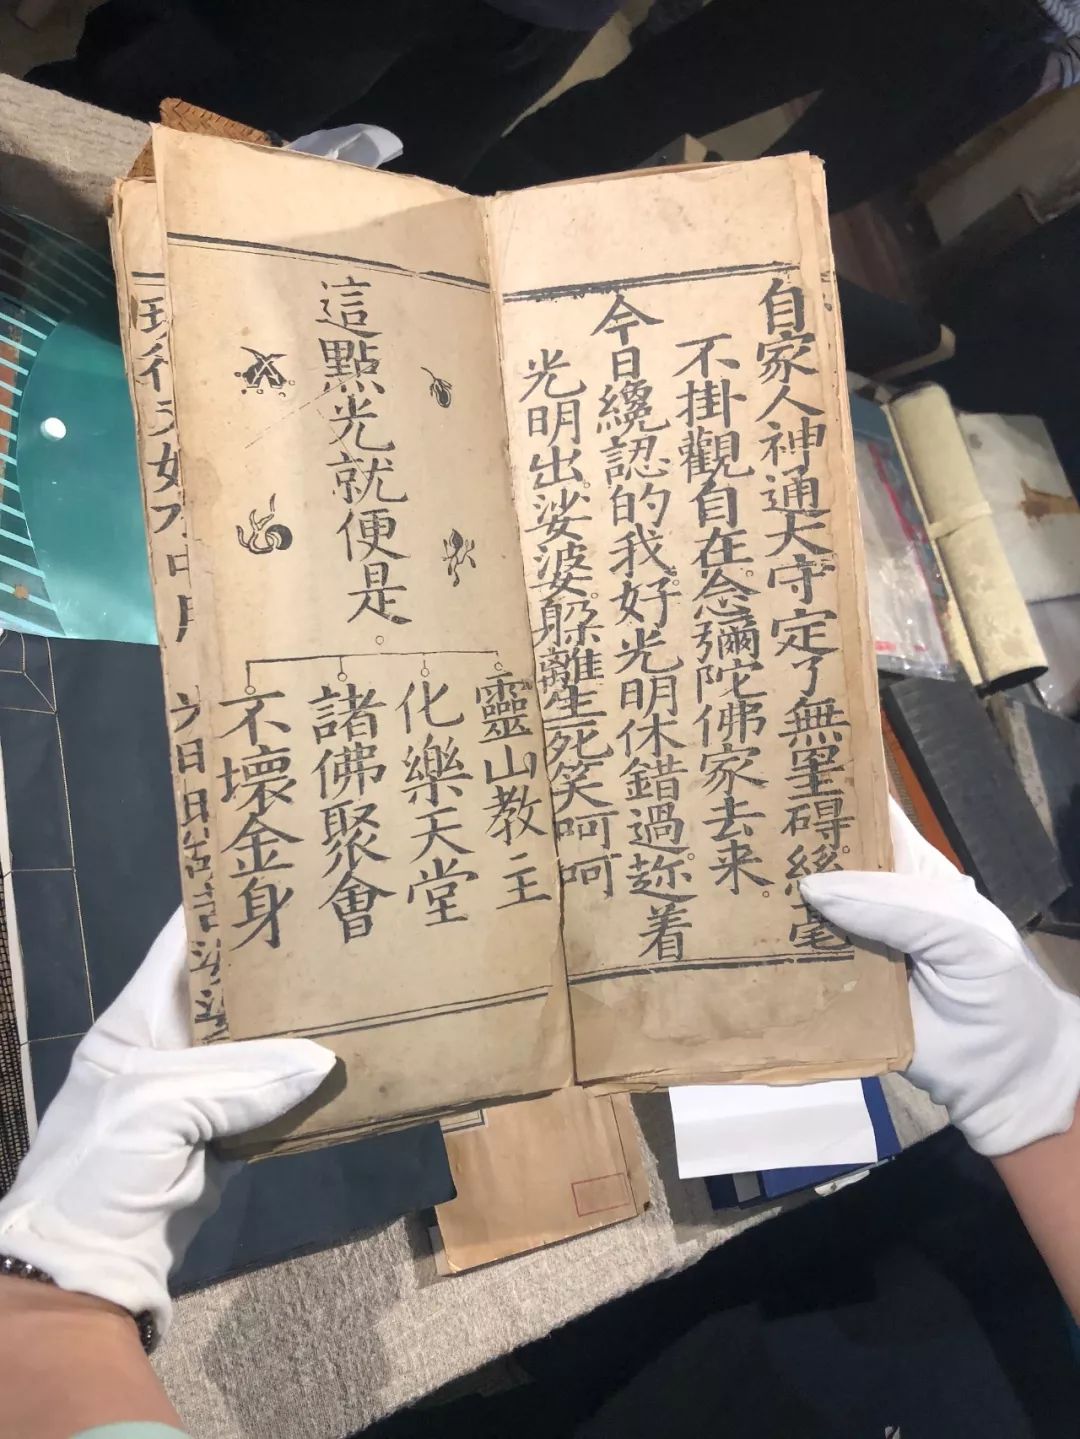 自家人神通大守定了無罣碍。絲毫
不掛觀自在。念彌陀佛家去来。
今日纔認的我。好光明休錯過。趂着
光明出娑婆。躲離生死笑呵呵
這點光就便是。
靈山教主
化樂天堂
諸佛聚會
不壞金身